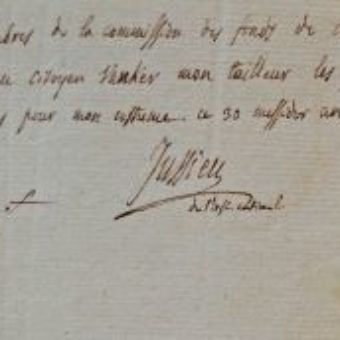 bres de la commission des fonds de
citoyen mon tailleur les
pour mon costume. ce 30 messidor an
Jussieu